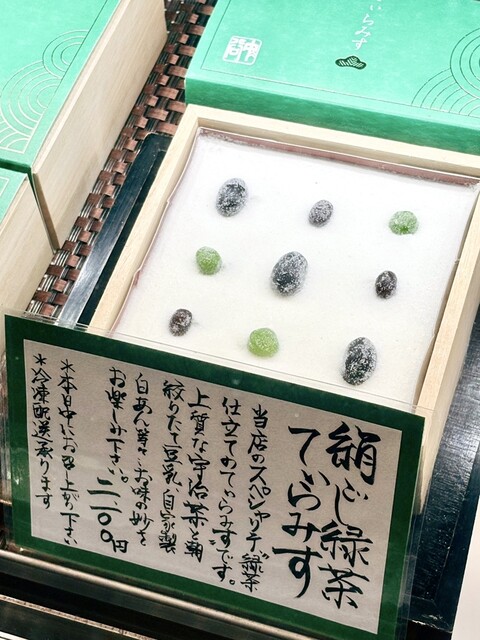 らみす
絹ごし緑茶
てぃらみす
当店のスペシャリテ、緑茶
仕立てのてぃらみすです。
上質な宇治茶と朝
絞りたて豆乳、自家製
白あん等々お味の妙を
お楽しみ下さい。
二一〇〇円
＊本日中にお召し上がり下さい
＊冷凍配送承ります